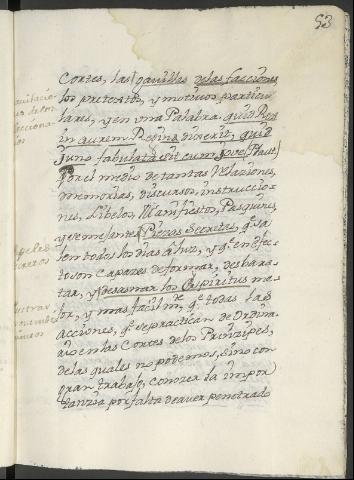 53
Cortes, las gavillas de las facciones
los pretextos, y motivos particu
lares, y en una Palabra, quid Rex
in aurem Reginæ dixerit, quid
Juno fabulata sit cum Jove (Plaut.)
Por el medio de tantas Relaciones,
memorias, discursos, instruccio-
nes, Libelos, Manifiestos, Pasquines,
y semejantes Piezas Secretas, q.e sa
len todos los dias à luz, y q.e en efec-
to son Capazes de formar, desbara-
tar, y desasnar los Espiritus me-
jor, y mas facilm.te q.e todas las
acciones, q.e se practican de Ordin-
ario en las Cortes de los Prinzipes,
de las quales no podemos, sino con
gran trabajo, conozer la impor
tanzia por falta de aver penetrado